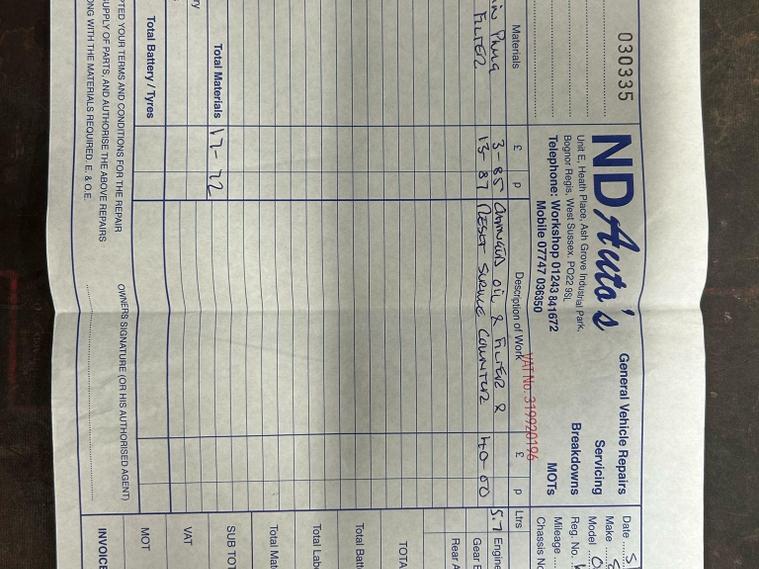 030335
ND Auto's
Unit E, Heath Place, Ash Grove Industrial Park,
Bognor Regis, West Sussex, PO22 9SL
Telephone: Workshop 01243 841672
Mobile 07747 036350
General Vehicle Repairs
Servicing
Breakdowns
MOTs
VAT No. 319920196
Date
Make
Model
Reg. No.
Mileage
Chassis No
Materials £ p Description of Work £ p Ltrs
Plug 3-85 Changed oil & Filter & 5.7 Engine
Filter 13-87 Reset Service Counter 40-00 Gear
Rear A
TOTA
Total Batt
Total Labo
Total Mate
SUB TOT
Total Materials 17-72
VAT
Total Battery / Tyres
MOT
PTED YOUR TERMS AND CONDITIONS FOR THE REPAIR
UPPLY OF PARTS, AND AUTHORISE THE ABOVE REPAIRS
ONG WITH THE MATERIALS REQUIRED. E. & O.E.
OWNERS SIGNATURE (OR HIS AUTHORISED AGENT)
INVOICE